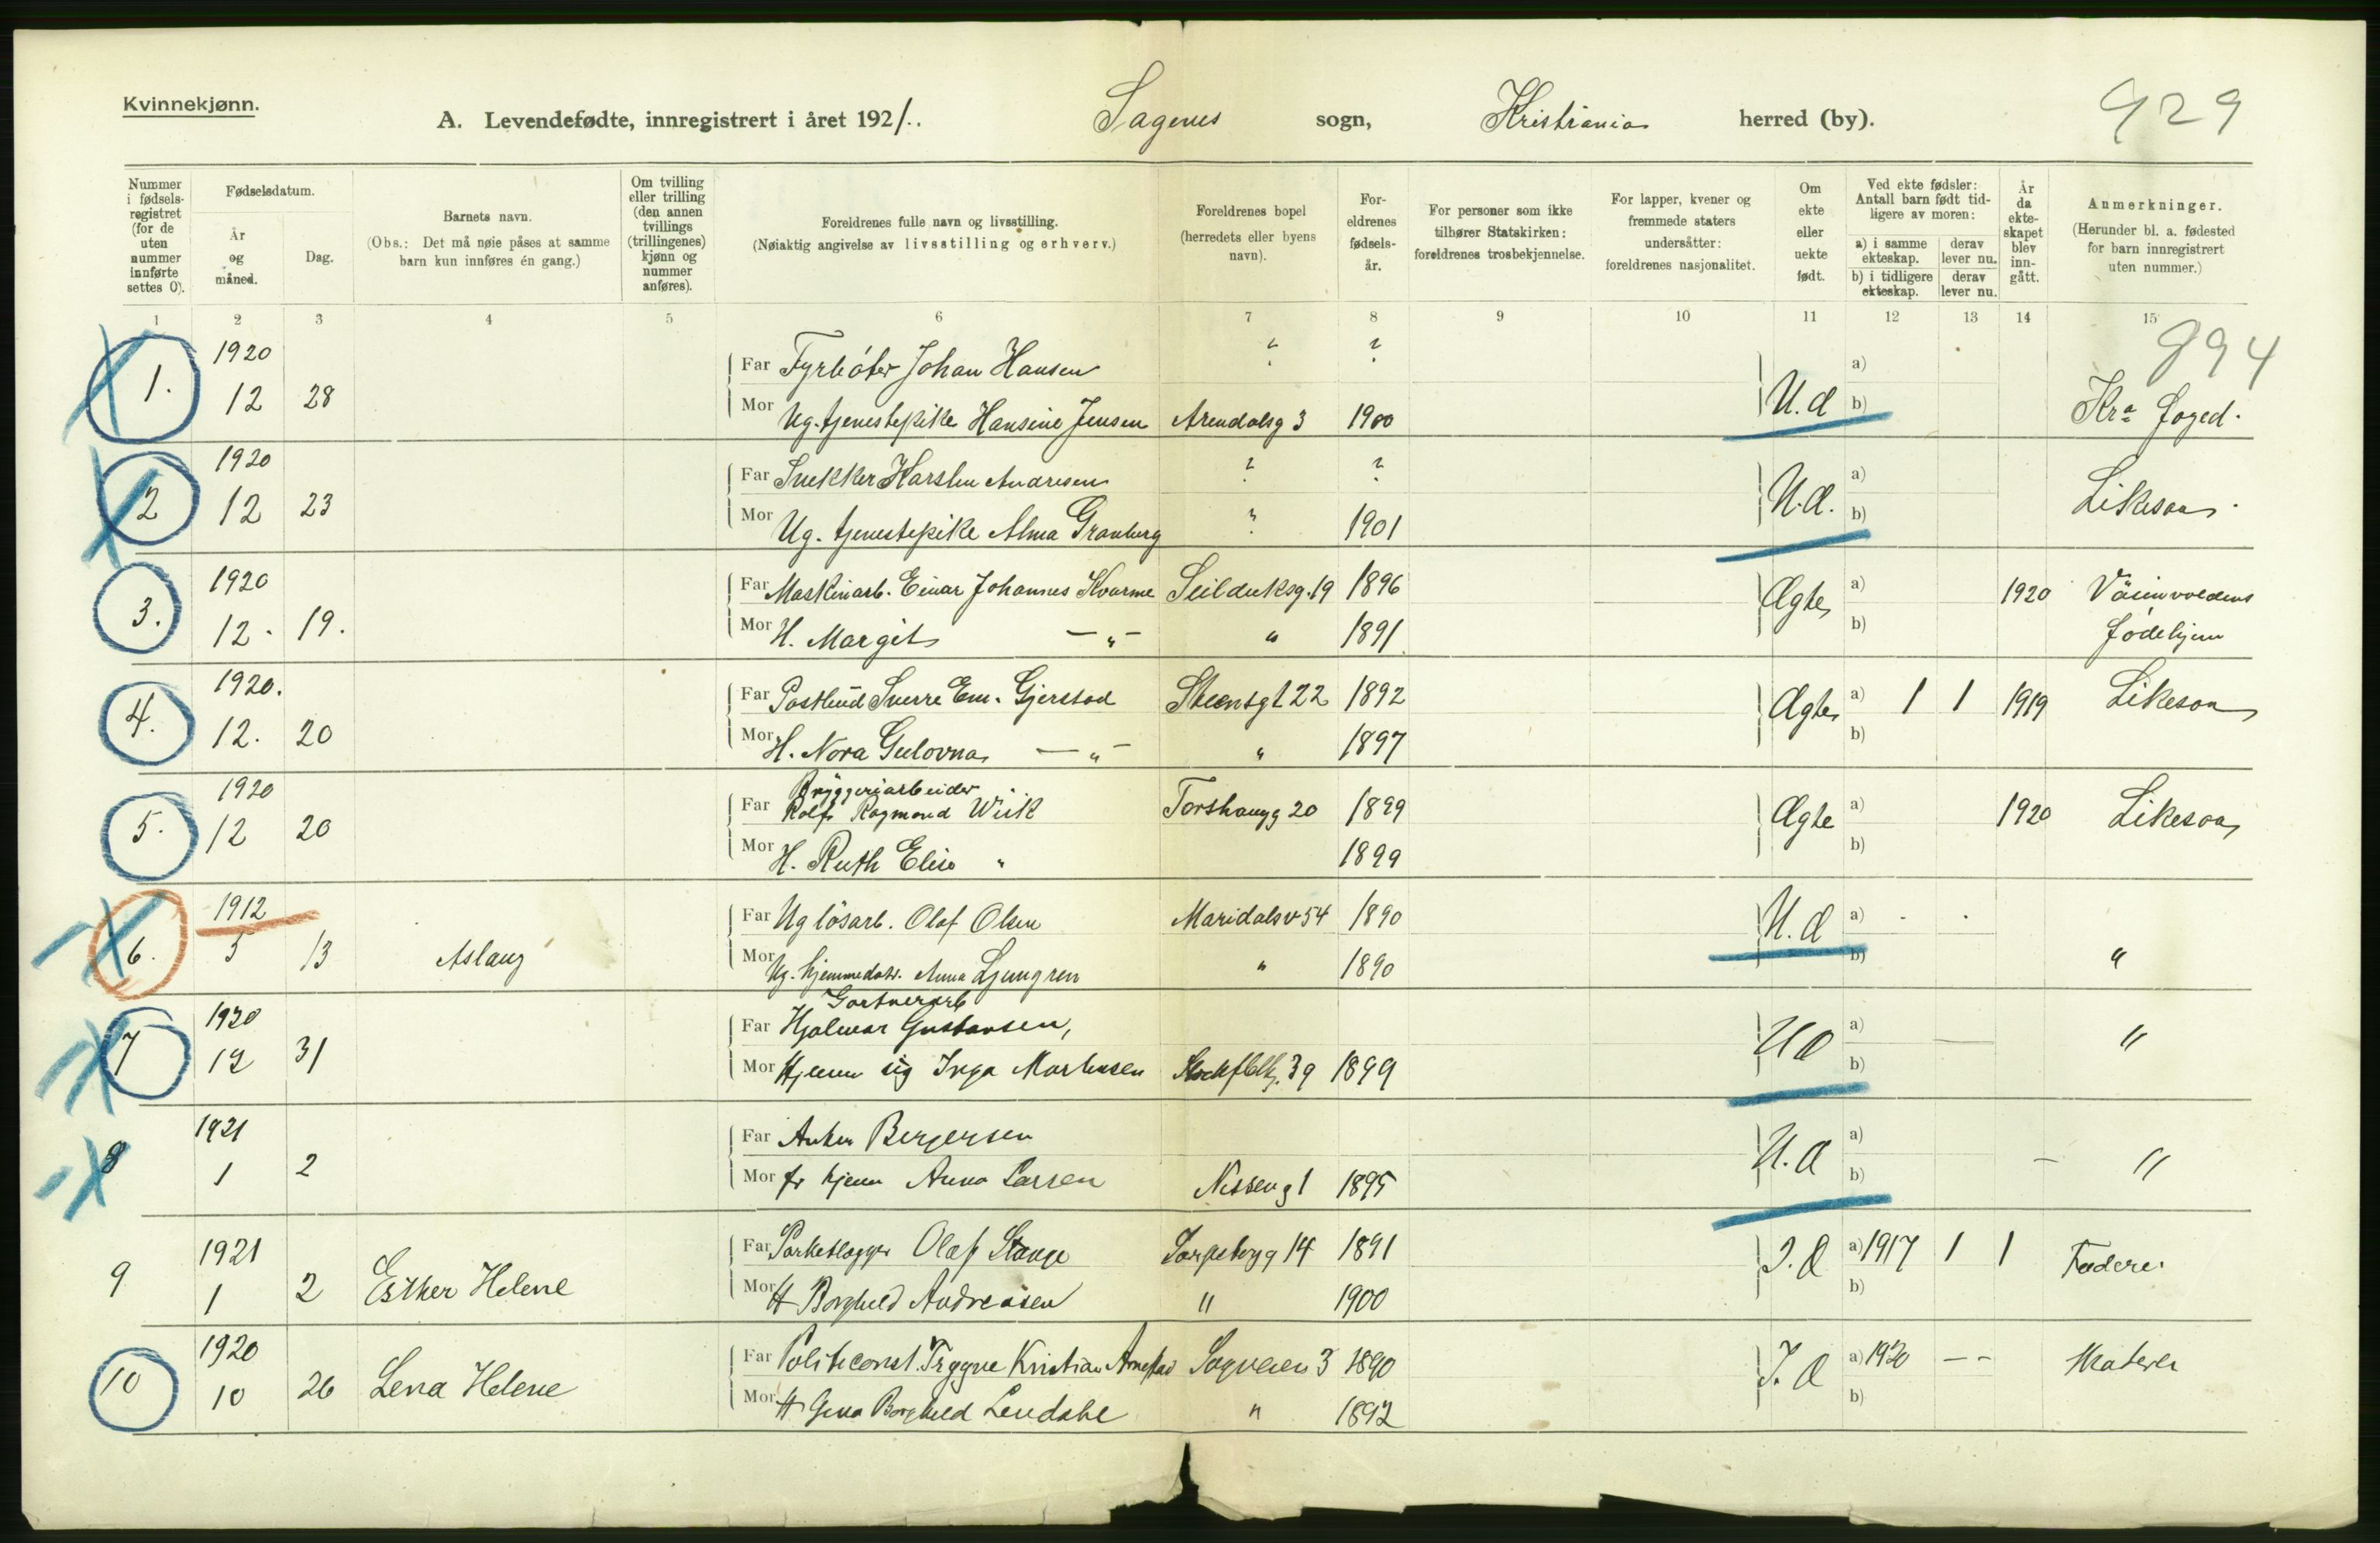 Kvinnekjønn.
A. Levendefødte, innregistrert i året 1921. Sagenes sogn, Kristiania herred (by). 929
Nummer i fødselsregistret (for de uten nummer innførte settes 0).
Fødselsdatum.
År og måned.
Dag.
Barnets navn.
(Obs.: Det må nøie påses at samme barn kun innføres én gang.)
Om tvilling eller trilling (den annen tvillings (trillingenes) kjønn og nummer anføres).
Foreldrenes fulle navn og livsstilling.
(Nøiaktig angivelse av livsstilling og erhverv.)
Foreldrenes bopel (herredets eller byens navn).
Foreldrenes fødselsår.
For personer som ikke tilhører Statskirken: foreldrenes trosbekjennelse.
For lapper, kvener og fremmede staters undersåtter: foreldrenes nasjonalitet.
Om ekte eller uekte født.
Ved ekte fødsler: Antall barn født tidligere av moren:
a) i samme ekteskap. derav lever nu.
b) i tidligere ekteskap. derav lever nu.
År da ekteskapet blev inngått.
Anmerkninger.
(Herunder bl. a. fødested for barn innregistrert uten nummer.)
1 2 3 4 5 6 7 8 9 10 11 12 13 14 15
894
1920
Far Fyrbøter Johan Hansen ? ? a)
1. 12 28 U.æ
Mor Ug. tjenestepike Hansine Jensen Arendalsg 3 1900 b) Kra
1920
Far Snekker Karsten Andresen ? ? a)
2 12 23 U.æ. Likesaa
Mor Ug. tjenestepike Alma Granberg ? 1901 b)
1920
Far Maskinarb. Einar Johannes Kvarme Seilduksg. 19 1896 Ægte a) 1920
3. 12. 19. fødehjem
Mor H. Margit — " — " 1891 b)
1920.
Far Postbud Sverre Em. Gjerstad Steensgt 22 1892 Ægte a) 1 1 1919 Likesaa
4. 12. 20
Mor H. Nora Gulovna — " — " 1897 b)
1920
Bryggeriarbeider
Far Rolf Ragmond Wiik Torshaugg 20 1899 Ægte a) 1920 Likesaa
5. 12 20
Mor H. Ruth Elise " 1899 b)
1912
Far Ug løsarb. Olaf Olsen Maridalsv 54 1890 U.æ a) - -
6. 5 13 Aslaug "
Mor Ug. hjemmedatr. Anna Ljungren " 1890 b)
Gartnerarb
1920
Far Hjalmar Gustavsen, a)
7 12 31 Uæ "
Mor Hjemme sig Inga Mortensen 39 1899 b)
1921
Far Anker Bergersen a)
8 1 2 U.æ — "
Mor fr hjem Anna Larsen Nisseng 1 1895 b)
1921
Far Parketlægger Olaf Stange Sarpsborgg 14 1891 a) 1917 1 1
9 1 2 Esther Helene Faderen
Mor H Borghild Andreasen " 1900 b)
1920
Far Politiconst. Trygve Kristian Sogneveien 3 1890 a) 1920 — —
10 10 26 Lena Helene
Mor H Gina Borghild Lendahl " 1892 b)